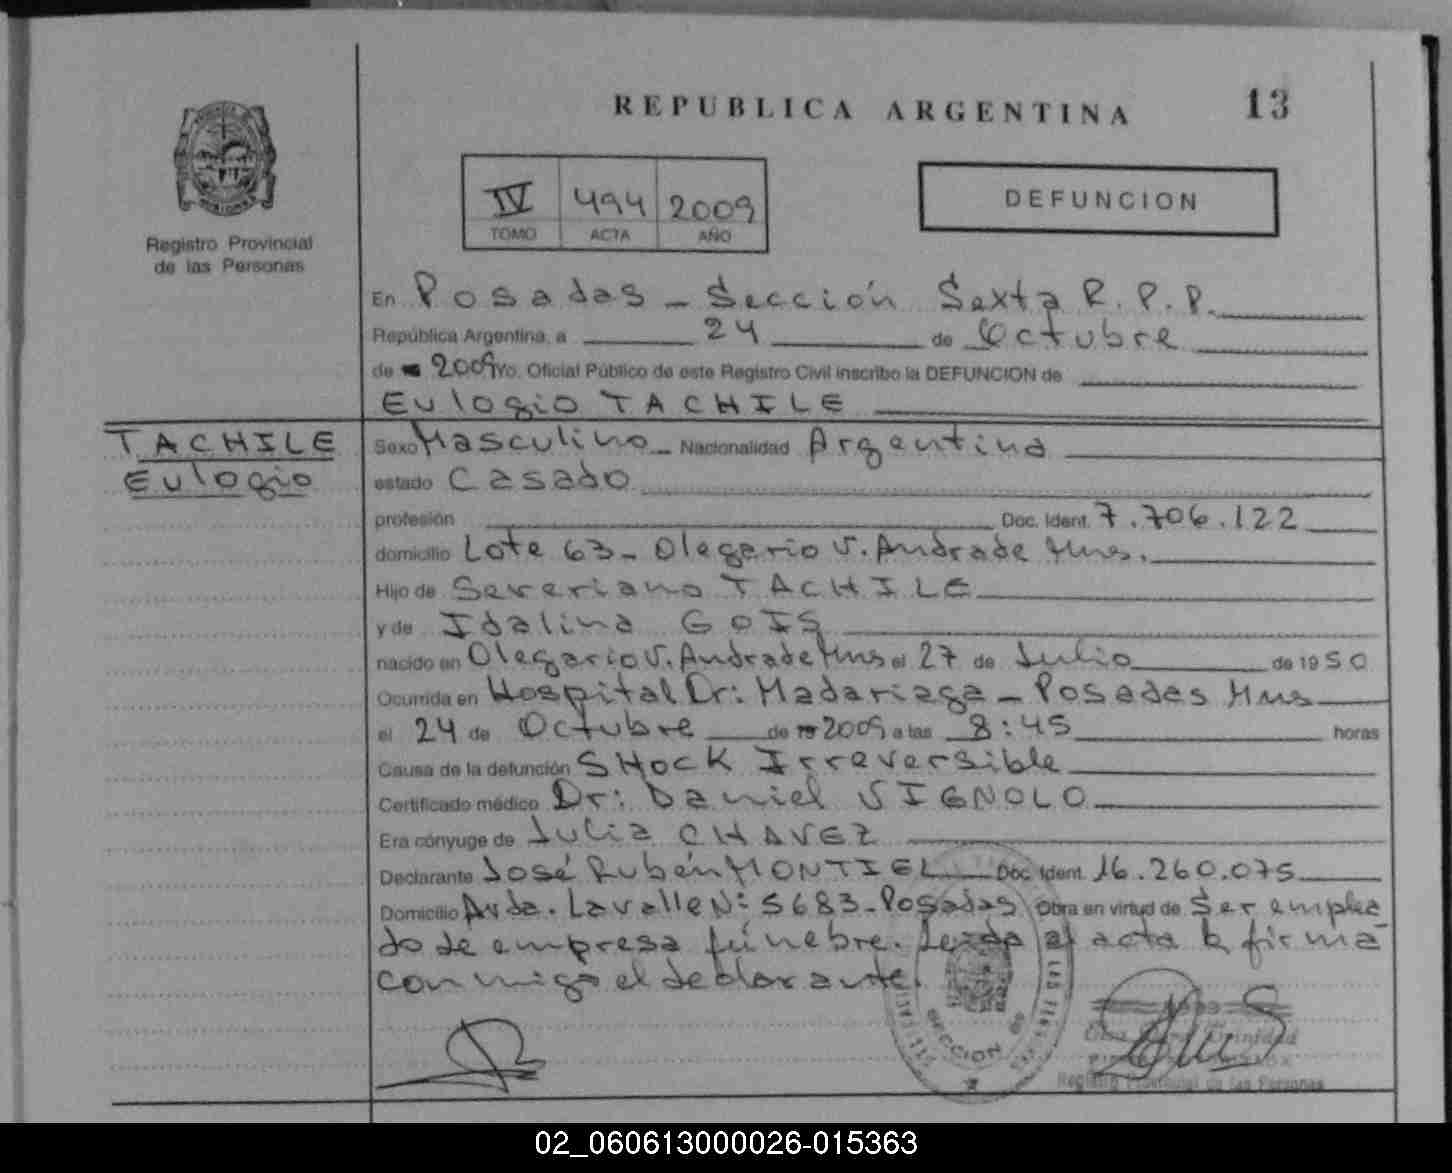 REPUBLICA ARGENTINA 13
Registro Provincial
de las Personas
IV 494 2009
TOMO ACTA AÑO
DEFUNCION
En Posadas - Sección Sexta R.P.P.
República Argentina, a 24 de Octubre
de 2009 Yo. Oficial Público de este Registro Civil inscribo la DEFUNCION de
Eulogio TACHILE
TACHILE
Eulogio
Sexo Masculino Nacionalidad Argentina
estado Casado
profesión Doc. Ident. 7.706.122
domicilio Lote 63 - Olegario V. Andrade Mns.
Hijo de Severiano TACHILE
y de Idalina GOIS
nacido en Olegario V. Andrade Mns el 27 de Julio de 1950
Ocurrida en Hospital Dr: Madariaga - Posadas Mns
el 24 de Octubre de 2009 a las 8:45 horas
Causa de la defunción SHock Irreversible
Certificado médico Dr: Daniel VIGNOLO
Era cónyuge de Julia CHAVEZ
Declarante José Rubén MONTIEL Doc. Ident. 16.260.075
Domicilio Avda. Lavalle N: 5683 - Posadas Obra en virtud de Ser emplea
do de empresa fúnebre. Leída el acta la firma
conmigo el declarante.
SECCION
Trinidad
Registro Provincial de las Personas
02_060613000026-015363